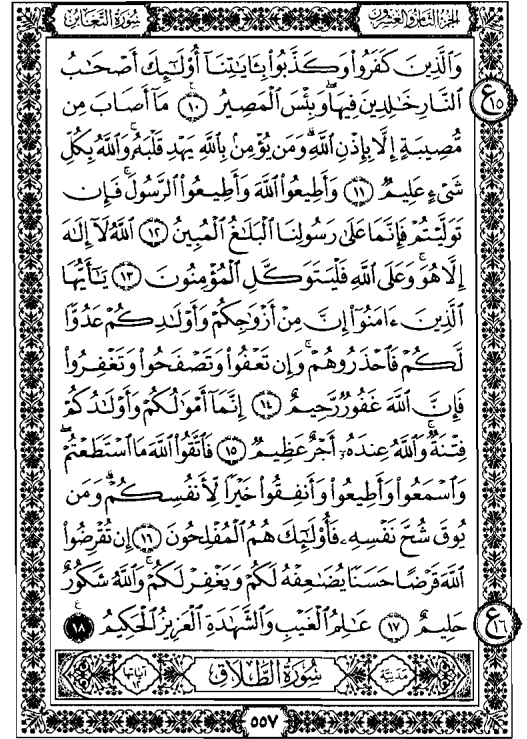 الجزء الثامن والعشرون
سُورَةُ التَّغَابُنِ
وَٱلَّذِينَ كَفَرُوا۟ وَكَذَّبُوا۟ بِـَٔايَـٰتِنَآ أُو۟لَـٰٓئِكَ أَصْحَـٰبُ
ٱلنَّارِ خَـٰلِدِينَ فِيهَا ۖ وَبِئْسَ ٱلْمَصِيرُ ١٠ مَآ أَصَابَ مِن
مُّصِيبَةٍ إِلَّا بِإِذْنِ ٱللَّهِ ۗ وَمَن يُؤْمِنۢ بِٱللَّهِ يَهْدِ قَلْبَهُۥ ۚ وَٱللَّهُ بِكُلِّ
شَىْءٍ عَلِيمٌ ١١ وَأَطِيعُوا۟ ٱللَّهَ وَأَطِيعُوا۟ ٱلرَّسُولَ ۚ فَإِن
تَوَلَّيْتُمْ فَإِنَّمَا عَلَىٰ رَسُولِنَا ٱلْبَلَـٰغُ ٱلْمُبِينُ ١٢ ٱللَّهُ لَآ إِلَـٰهَ
إِلَّا هُوَ ۚ وَعَلَى ٱللَّهِ فَلْيَتَوَكَّلِ ٱلْمُؤْمِنُونَ ١٣ يَـٰٓأَيُّهَا
ٱلَّذِينَ ءَامَنُوٓا۟ إِنَّ مِنْ أَزْوَٰجِكُمْ وَأَوْلَـٰدِكُمْ عَدُوًّا
لَّكُمْ فَٱحْذَرُوهُمْ ۚ وَإِن تَعْفُوا۟ وَتَصْفَحُوا۟ وَتَغْفِرُوا۟
فَإِنَّ ٱللَّهَ غَفُورٌ رَّحِيمٌ ١٤ إِنَّمَآ أَمْوَٰلُكُمْ وَأَوْلَـٰدُكُمْ
فِتْنَةٌ ۚ وَٱللَّهُ عِندَهُۥٓ أَجْرٌ عَظِيمٌ ١٥ فَٱتَّقُوا۟ ٱللَّهَ مَا ٱسْتَطَعْتُمْ
وَٱسْمَعُوا۟ وَأَطِيعُوا۟ وَأَنفِقُوا۟ خَيْرًا لِّأَنفُسِكُمْ ۗ وَمَن
يُوقَ شُحَّ نَفْسِهِۦ فَأُو۟لَـٰٓئِكَ هُمُ ٱلْمُفْلِحُونَ ١٦ إِن تُقْرِضُوا۟
ٱللَّهَ قَرْضًا حَسَنًا يُضَـٰعِفْهُ لَكُمْ وَيَغْفِرْ لَكُمْ ۚ وَٱللَّهُ شَكُورٌ
حَلِيمٌ ١٧ عَـٰلِمُ ٱلْغَيْبِ وَٱلشَّهَـٰدَةِ ٱلْعَزِيزُ ٱلْحَكِيمُ ١٨
مَدَنِيَّة
سُورَةُ الطَّلَاقِ
آيَاتُهَا ١٢
٥٥٧